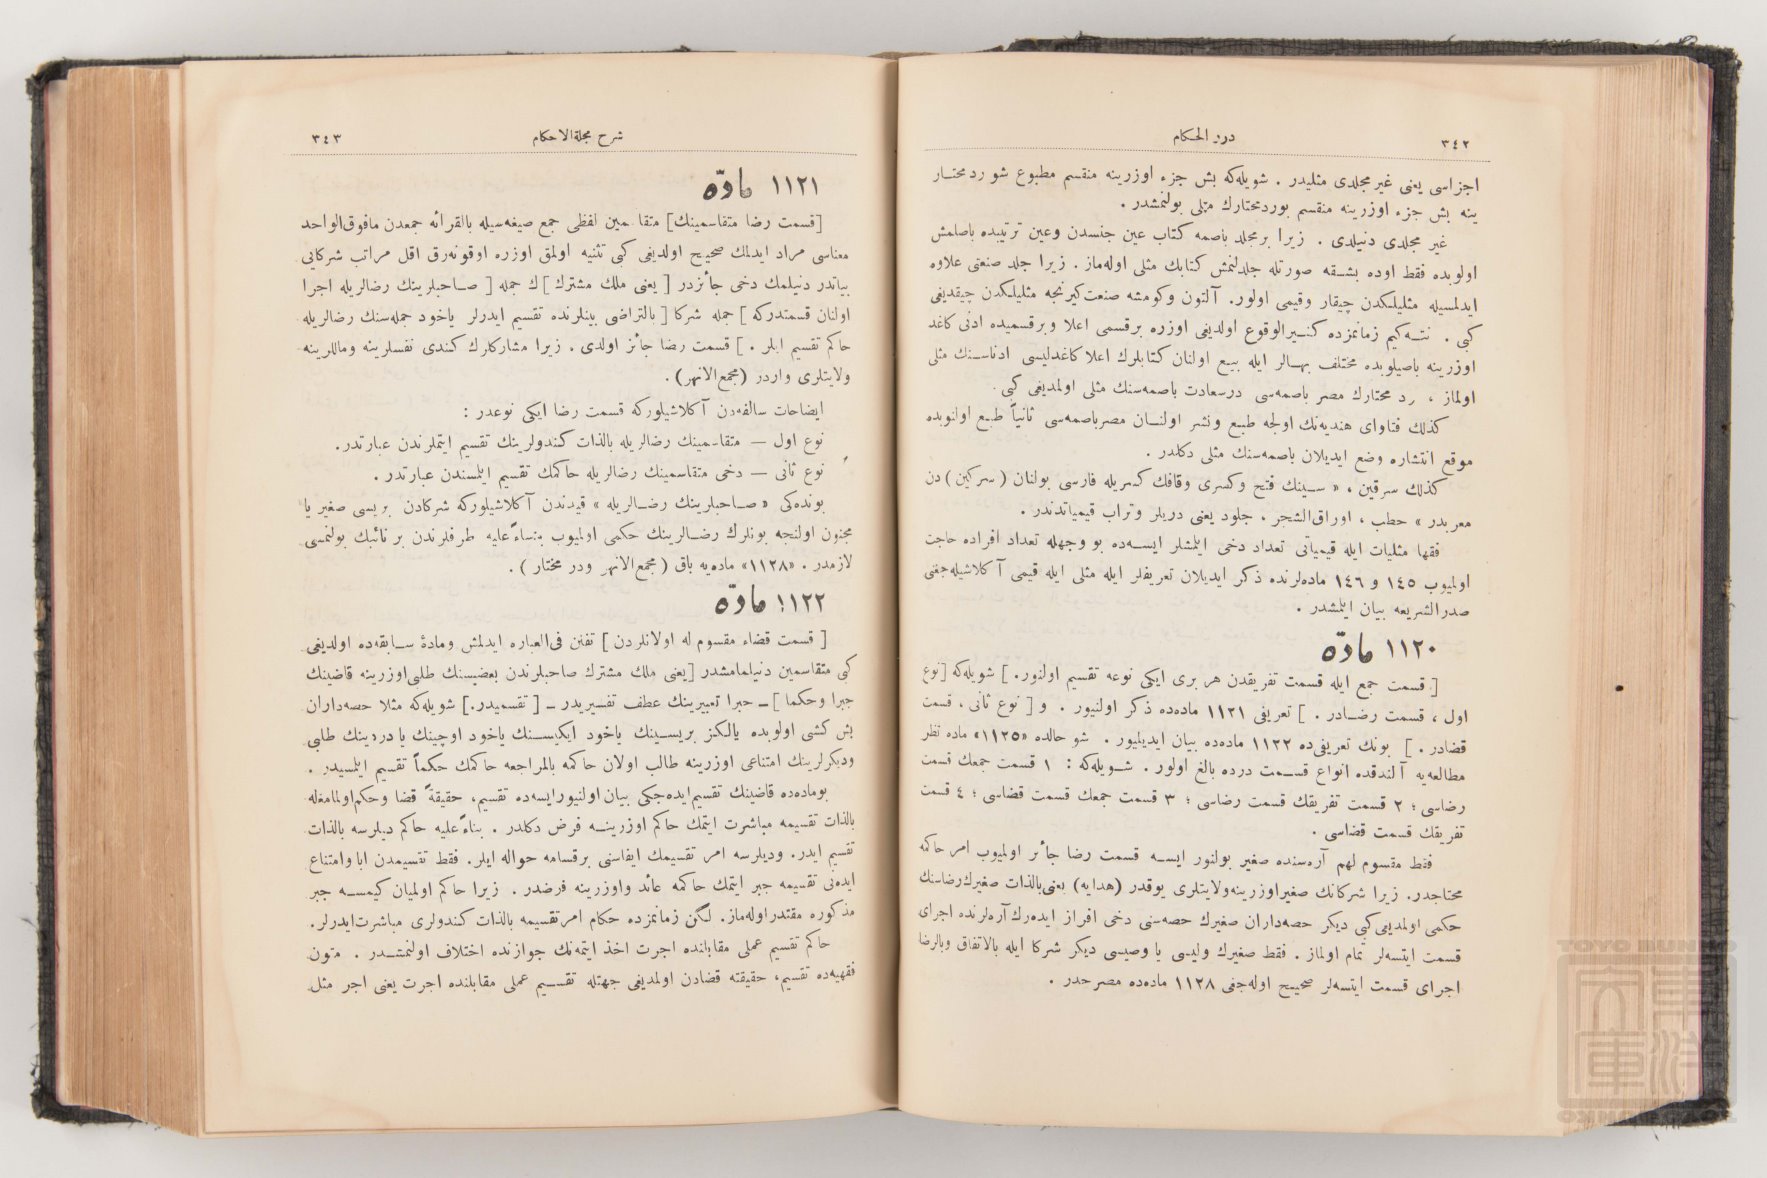 ٣٤٢
درر الحكام
اجزاسی یعنی غیر مجلدی مثلیدر . شویله‌كه بش جزء اوزرینه منقسم مطبوع شو رد مختـار
ینه بش جزء اوزرینه منقسم بوردمختارك مثلی بولنمشدر .
غیر مجلدی دنیلدی . زیرا بر مجلد باصمه كتاب عین جنسدن وعین ترتیبده باصلمش
اولوبده فقط اوده بشـقه صورتله جلدلنمش كتابك مثلی اوله‌ماز . زیرا جلد صنعتی علاوه
ایدلمسیله مثلیلكدن چیقار وقیمی اولور. آلتون وكومشه صنعت كیرنجه مثلیلكدن چیقدیغی
كبی . نتـه‌كیم زمانمزده كثـیرالوقوع اولدیغی اوزره بر قسمی اعلا وبرقسمیده ادنی كاغد
اوزرینه باصیلوبده مختلف بهـالر ایله بیع اولنان كتابلرك اعلا كاغدلیسی ادناسـنك مثلی
اولماز ، رد مختارك مصر باصمه‌سی درسعادت باصمه‌سنك مثلی اولمدیغی كبی .
كذلك فتاوای هندیه‌نك اولجه طبع ونشر اولنـان مصرباصمه‌سی ثانیاً طبع اولنوبده
موقع انتشاره وضع ایدیلان باصمه‌سنك مثلی دكلدر .
كذلك سرقین ، « سـینك فتح وكسری وقافك كسریله فارسی بولنان (سركین) دن
معربدر » حطب ، اوراق‌الشجر ، جلود یعنی دریلر وتراب قیمیاتدندر .
فقها مثلیات ایله قیمیاتی تعداد دخی ایلمشلر ایسـه‌ده بو وجهله تعداد افراده حاجت
اولمیوب ١٤٥ و ١٤٦ ماده‌لرنده ذكر ایدیلان تعریفلر ایله مثلی ایله قیمی آكلاشیله‌جغنی
صدرالشریعه بیان ایلمشدر .
١١٢٠ مادّه
[ قسمت جمع ایله قسمت تفریقدن هر بری ایكی نوعه تقسیم اولنور. ] شویله‌كه [نوع
اول ، قسمت رضـادر . ] تعریفی ١١٢١ ماده‌ده ذكر اولنیور . و [ نوع ثانی ، قسمت
قضادر . ] بونك تعریفی‌ده ١١٢٢ ماده‌ده بیان ایدیلیور . شو حالده «١١٢٥» ماده نظر
مطالعه‌یه آلندقده انواع قسـمت درده بالغ اولور . شـویله‌كه : ١ قسمت جمعك قسمت
رضاسی ؛ ٢ قسمت تفریقك قسمت رضاسی ؛ ٣ قسمت جمعك قسمت قضاسی ؛ ٤ قسمت
تفریقك قسمت قضاسی .
فقط مقسوم لهم آره‌سنده صغیر بولنور ایسـه قسمت رضا جائز اولمیوب امر حاكمه
محتاجدر. زیرا شركانك صغیر اوزرینه‌ولایتلری یوقدر (هدایه) یعنی‌بالذات صغیرك‌رضاسنك
حكمی اولمدیغی‌كبی دیكر حصه‌داران صغیرك حصه‌سنی دخی افراز ایده‌رك آره‌لرنده اجرای
قسمت ایتسه‌لر تمام اولماز . فقط صغیرك ولیسی یا وصیسی دیكر شركا ایله بالاتفاق وبالرضا
اجرای قسمت ایتسه‌لر صحیح اوله‌جغی ١١٢٨ ماده‌ده مصرحدر .
شرح مجلةالاحكام
٣٤٣
١١٢١ مادّه
[قسمت رضا متقاسمینك] متقاسمین لفظی جمع صیغه‌سیله بالقرائه جمعدن مافوق‌الواحد
معناسی مراد ایدلمك صحیح اولدیغی كبی تثنیه اولمق اوزره اوقونه‌رق اقل مراتب شركایی
بیاندر دنیلمك دخی جائزدر [ یعنی ملك مشترك ]ك جمله [ صـاحبلرینك رضالریله اجرا
اولنان قسمتدركه ] جمله شركا [ بالتراضی بینلرنده تقسیم ایدرلر یاخود جمله‌سنك رضالریله
حاكم تقسیم ایلر . ] قسمت رضا جائز اولدی . زیرا مشاركلرك كندی نفسلرینه وماللرینه
ولایتلری واردر (مجمع‌الانهر) .
ایضاحات سالفه‌دن آكلاشیلوركه قسمت رضا ایكی نوعدر :
نوع اول — متقاسمینك رضالریله بالذات كندولرینك تقسیم ایتملرندن عبارتدر.
نوع ثانی — دخی متقاسمینك رضالریله حاكمك تقسیم ایلمسندن عبارتدر .
بونده‌كی « صـاحبلرینك رضـالریله » قیدندن آكلاشیلوركه شركادن بریسی صغیر یا
مجنون اولنجه بونلرك رضـالرینك حكمی اولمیوب بناءً علیه طرفلرندن بر نائبك بولنمسی
لازمدر . «١١٢٨» ماده‌یه باق ( مجمع‌الانهر ودر مختار ) .
١١٢٢ مادّه
[ قسمت قضاء مقسوم له اولانلردن ] تفنن فی‌العباره ایدلمش ومادهٔ سـابقه‌ده اولدیغی
كبی متقاسمین دنیلمامشدر [یعنی ملك مشترك صاحبلرندن بعضیسنك طلبی‌اوزرینه قاضینك
جبرا وحكما ] ــ جبرا تعبیرینك عطف تفسیریدر ــ [ تقسمیدر.] شویله‌كه مثلا حصه‌داران
بش كشی اولوبده یالكنز بریسـینك یاخود ایكیسـنك یاخود اوچینك یا دردینك طلبی
ودیكرلرینك امتناعی اوزرینه طالب اولان حاكمه بالمراجعه حاكمك حكماً تقسیم ایلمسیدر .
بوماده‌ده قاضینك تقسیم‌ایده‌جكی بیان اولنیورایسه‌ده تقسیم، حقیقةً قضا وحكم‌اولمامغله
بالذات تقسیمه مباشرت ایتمك حاكم اوزرینـه فرض دكلدر . بناءً علیه حاكم دیلرسه بالذات
تقسیم ایدر. ودیلرسه امر تقسیمك ایفاسنی برقسامه حواله ایلر. فقط تقسیمدن ابا وامتناع
ایده‌نی تقسیمه جبر ایتمك حاكمه عائد واوزرینه فرضدر . زیرا حاكم اولمیان كیمسـه جبر
مذكوره مقتدراوله‌ماز. لكن زمانمزده حكام امرتقسیمه بالذات كندولری مباشرت‌ایدرلر.
حاكم تقسیم عملی مقابلنده اجرت اخذ ایتمه‌نك جوازنده اختلاف اولنمشـدر . متون
فقهیه‌ده تقسیم، حقیقته قضادن اولمدیغی جهتله تقسـیم عملی مقابلنده اجرت یعنی اجر مثل
TOYO BUNKO
東洋文庫